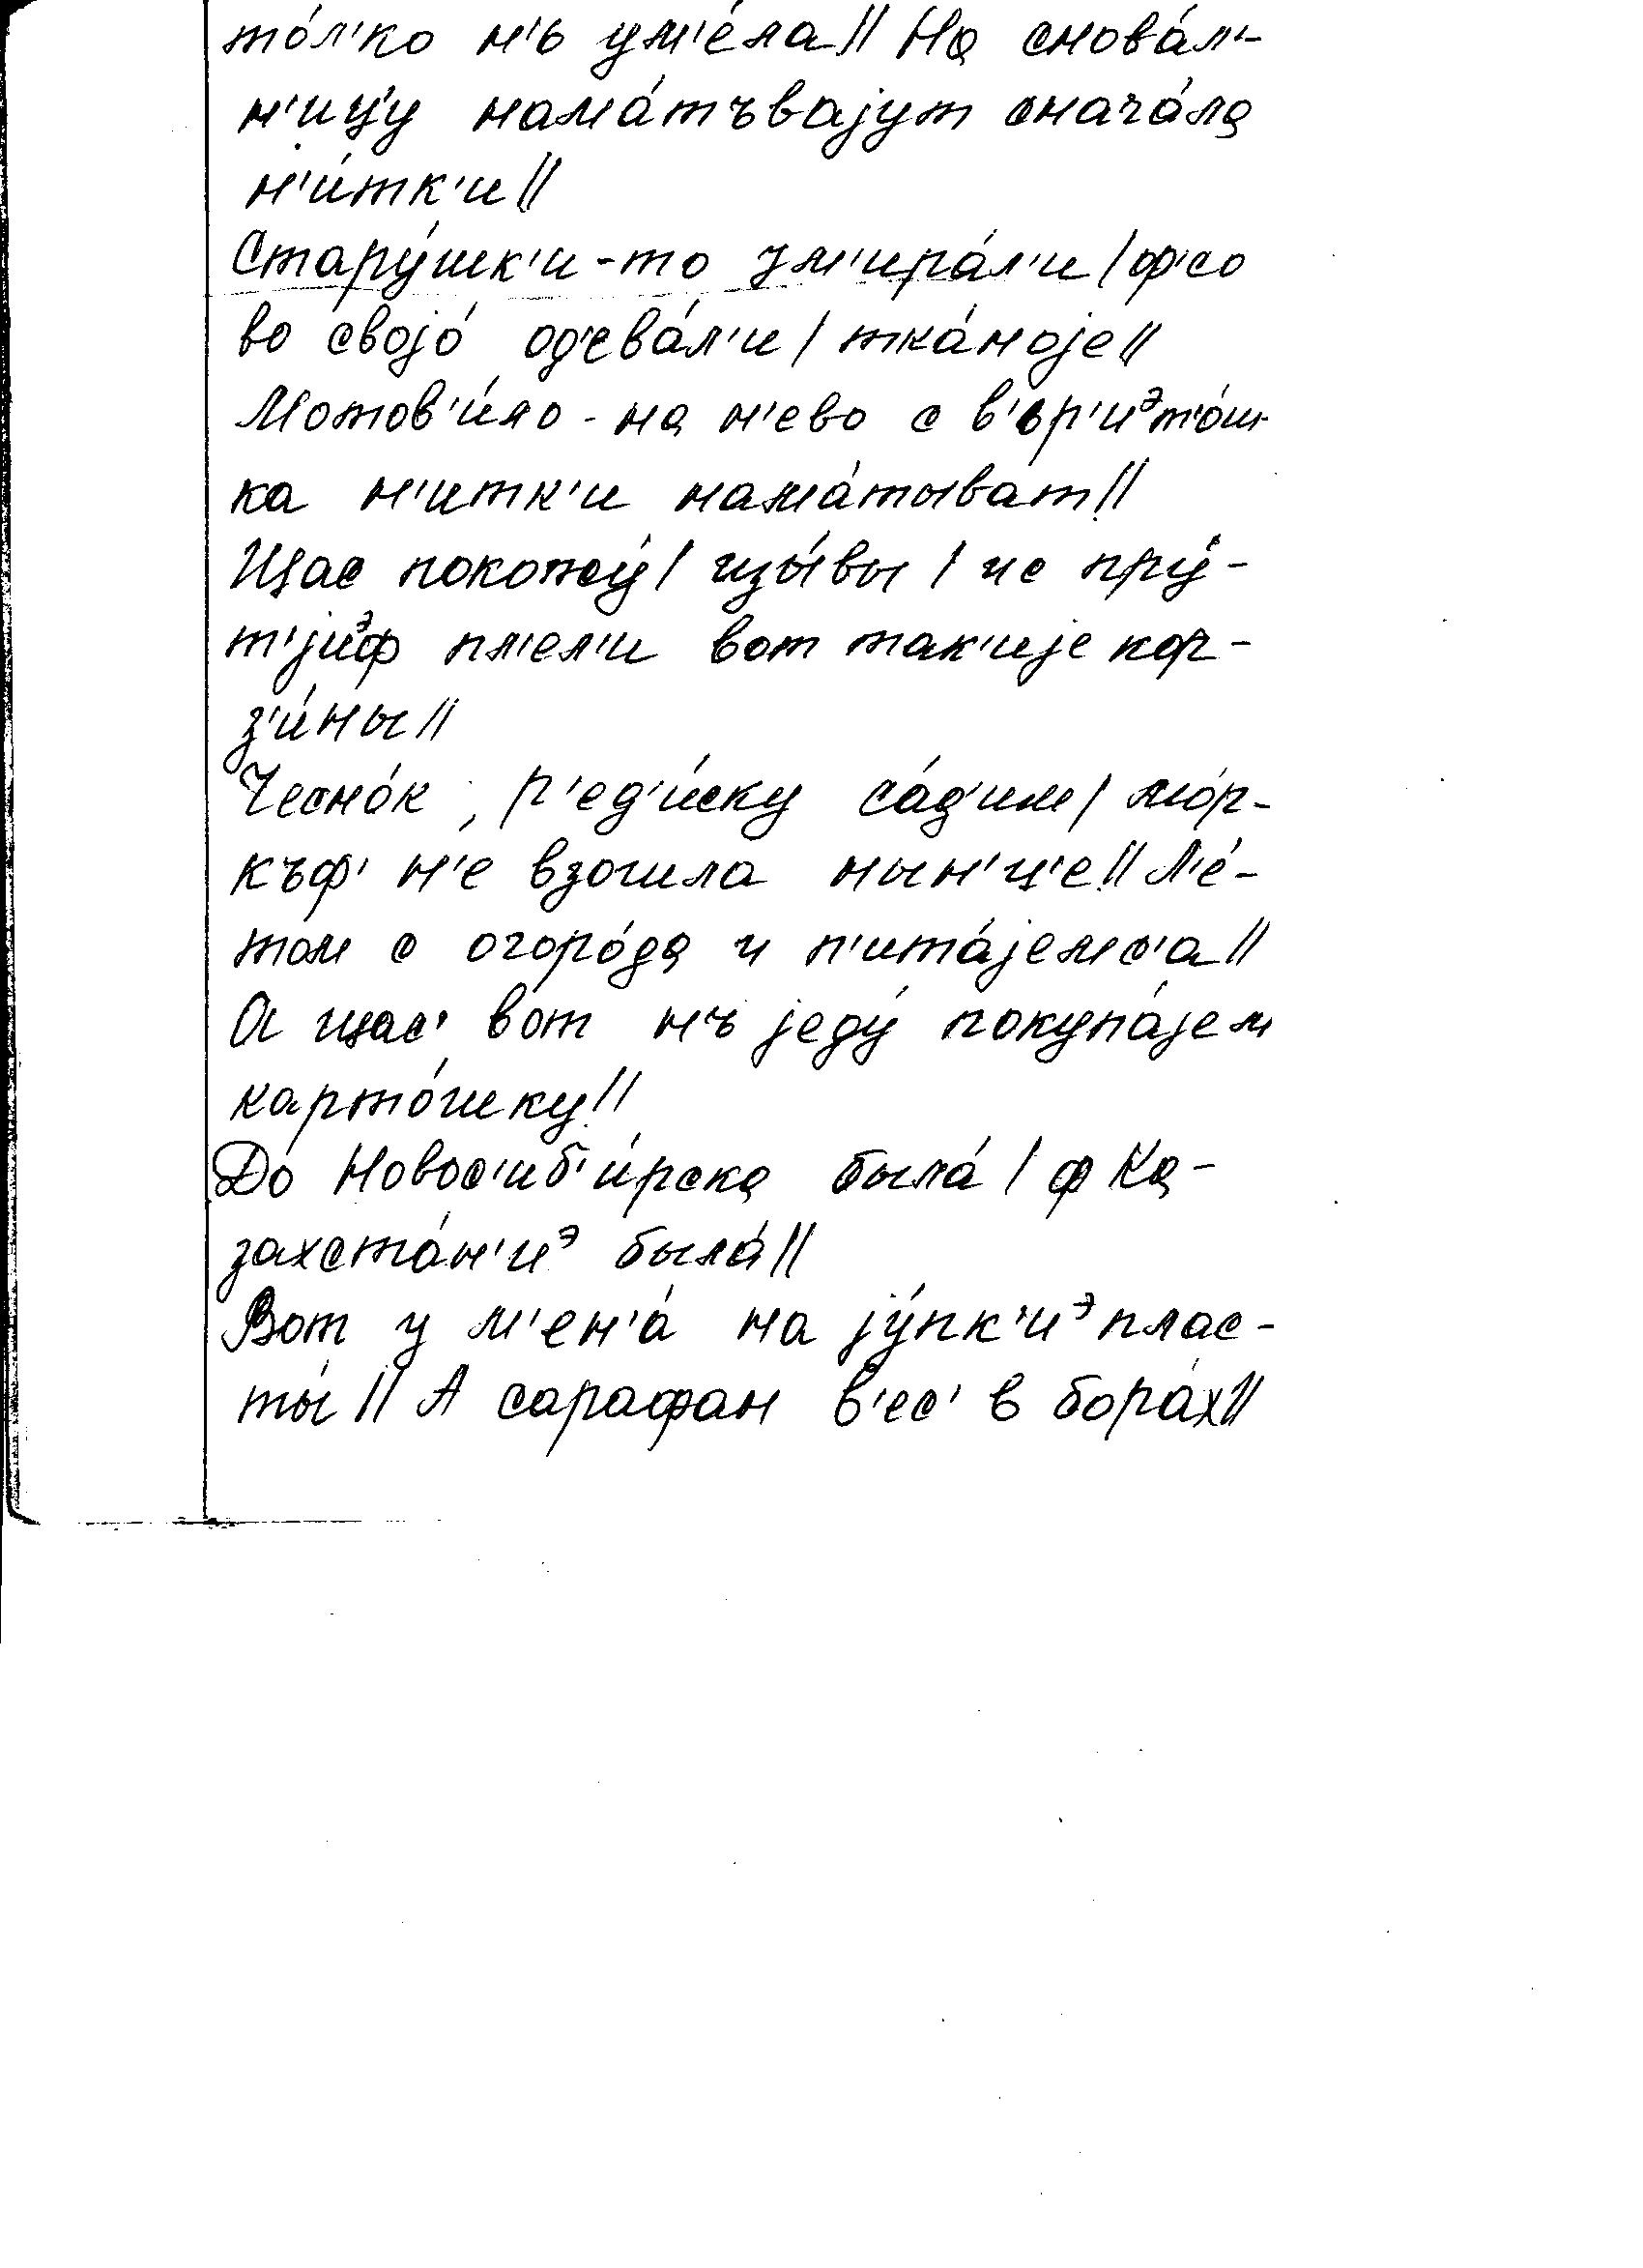 то́л'ко н'ь ум'е́ла || На снова́л'-
н'иц'у нама́тъваjут снача́ла
н'и́тк'и ||
Стару́шк'и-то ум'ира́л'и | ф'со
во своjо́ од'ева́л'и | тка́ноjе ||
Мотов'и́ло - на н'ево с в'ьр'иᶟт'о́ш-
ка н'итк'и нама́тыват ||
Щас покожу́ | изы́вы | ис пру́-
т'jиᶟф пл'ел'и вот так'иjе кор-
з'и́ны ||
Чесно́к, р'ед'и́ску са́д'им | мо́р-
къф' н'е взошла нын'ц'е || Л'е́-
том с огоро́да и п'ита́jемс'а ||
А щас' во́т нъ jеду́ покупа́jем
карто́шку ||
До Новос'иб'и́рска была́ | ф Ка-
захста́н'иᶟ была́ ||
Вот у м'ен'а́ на jу́пк'иᶟ плас-
ты́ || А сарафан в'ес' в бора́х ||